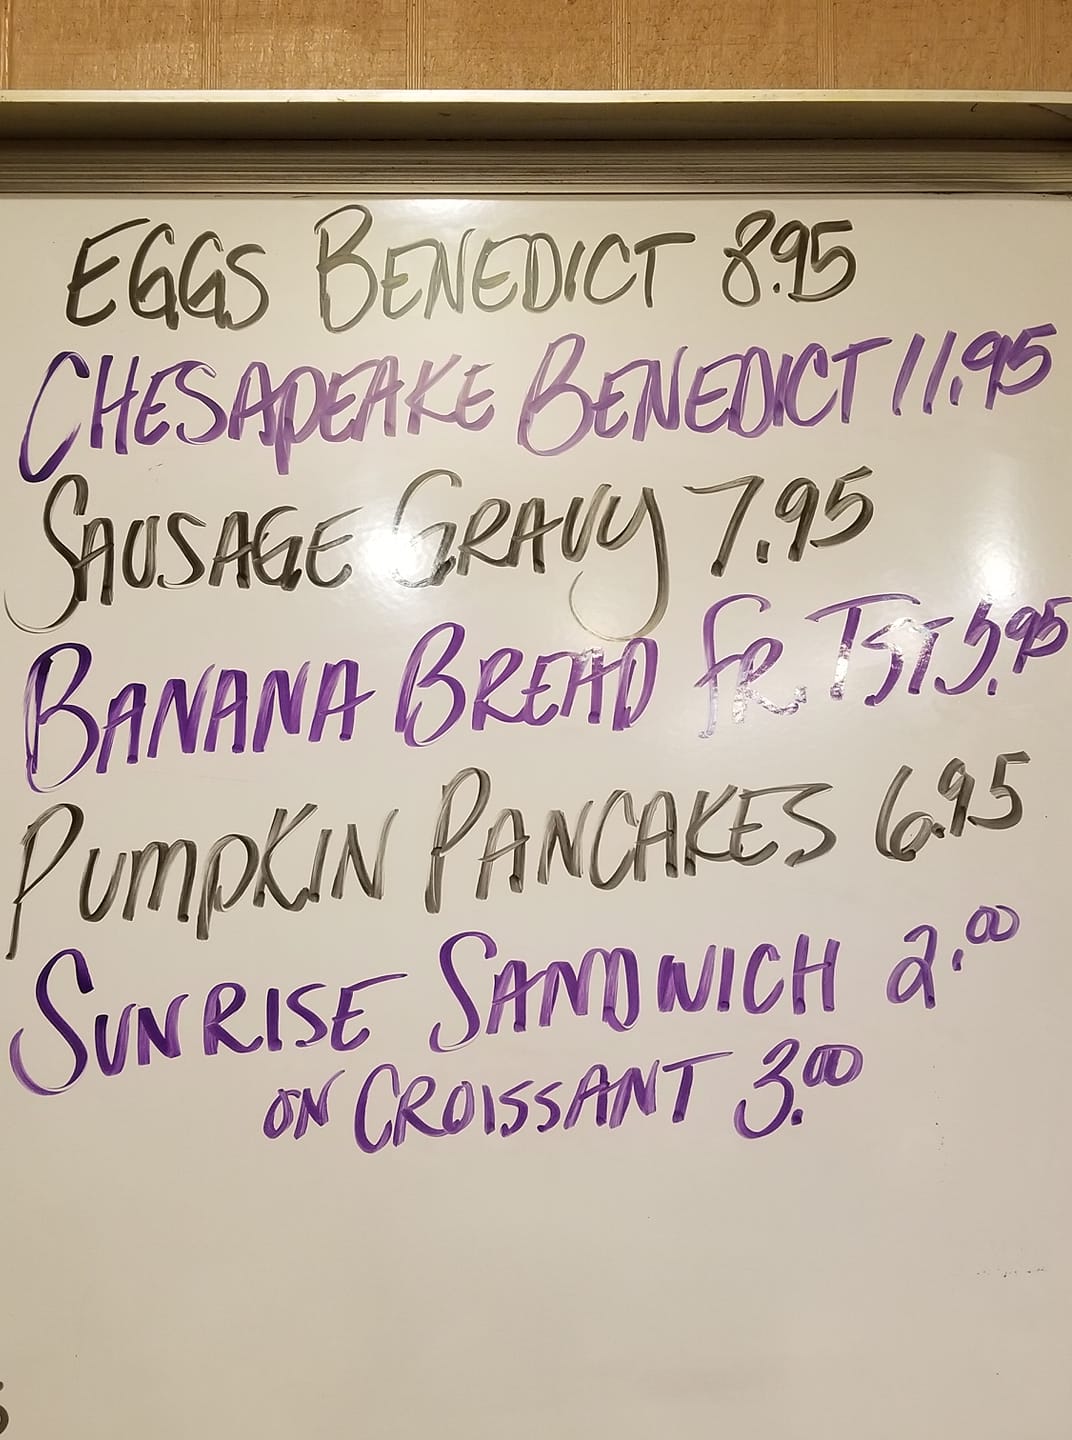 EGGS BENEDICT 8.95
CHESAPEAKE BENEDICT 11.95
SAUSAGE GRAVY 7.95
BANANA BREAD FR. TST 5.95
PUMPKIN PANCAKES 6.95
SUNRISE SANDWICH 2.00
ON CROISSANT 3.00